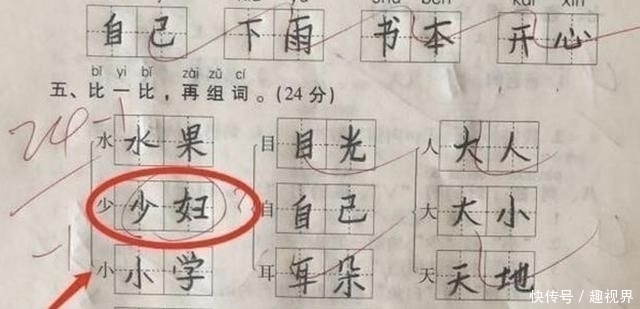 自己 下雨 书本 开心
bǐ yi bǐ zài zǔ cí
五、比一比，再组词。(24分)
24 -1
水 水果 目 目光 人 大人
少 少妇 自 自己 大 大小
-1
小 小学 耳 耳朵 天 天地
快传号/趣视界